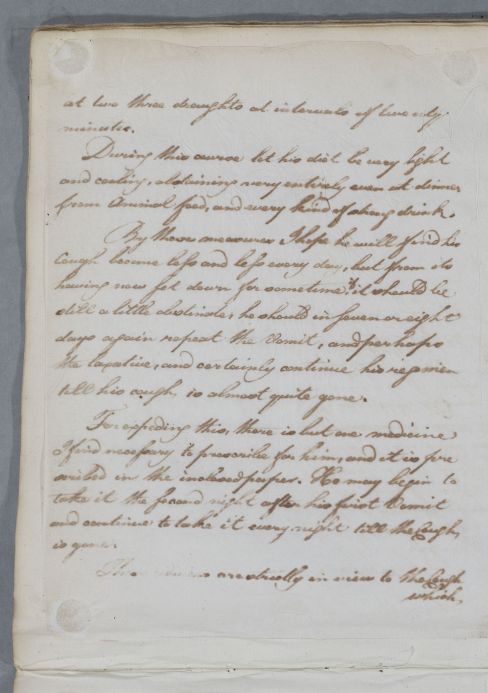 at two three draughts at intervals of twenty
minutes.
During this course let his diet be very light
and cooling, abstaining very entirely even at dinner
from Animal food, and every kind of strong drink.
By these measures I hope he will find his
Cough become less and less every day, but from its
having now set down for sometime, it should be
still a little obstinate, he should in seven or eight
days again repeat the Vomit, and perhaps
the laxative, and certainly continue his regimen
till his cough, is almost quite gone.
For expeding this, there is but one medicine
I find necessary to prescribe for him, and it is pre
scribed in the inclosed paper. He may begin to
take it the second night after his first Vomit
and continue to take it every night till the Cough,
is gone.
are strictly in view to the Cough
which,